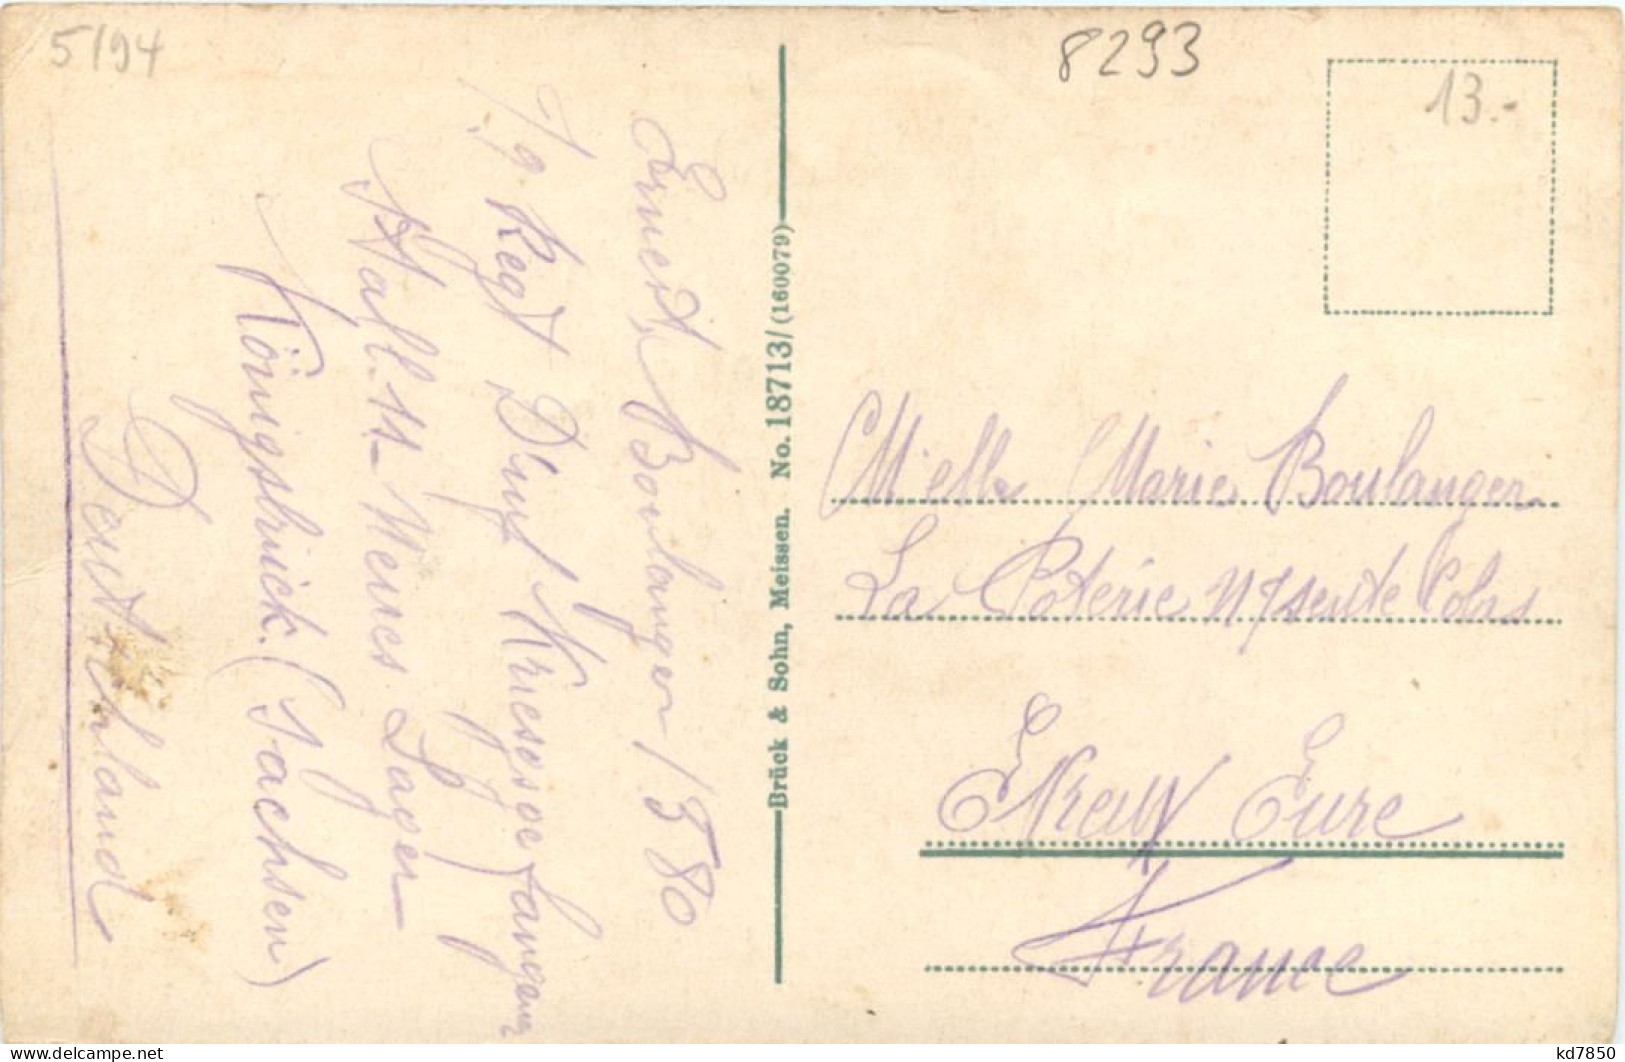 5194
8293
13.-
Ernest Boulanger 1580
7/9 Regt D'inf Kriegsgefangener
Stall. 11 - Neues Lager
Königsbrück. (Sachsen)
Deutschland
Brück & Sohn, Meissen. No. 18713/(160079)
M'elle Marie Boulanger
La Poterie N7 sente Colas
Evreux Eure
France
kd7850